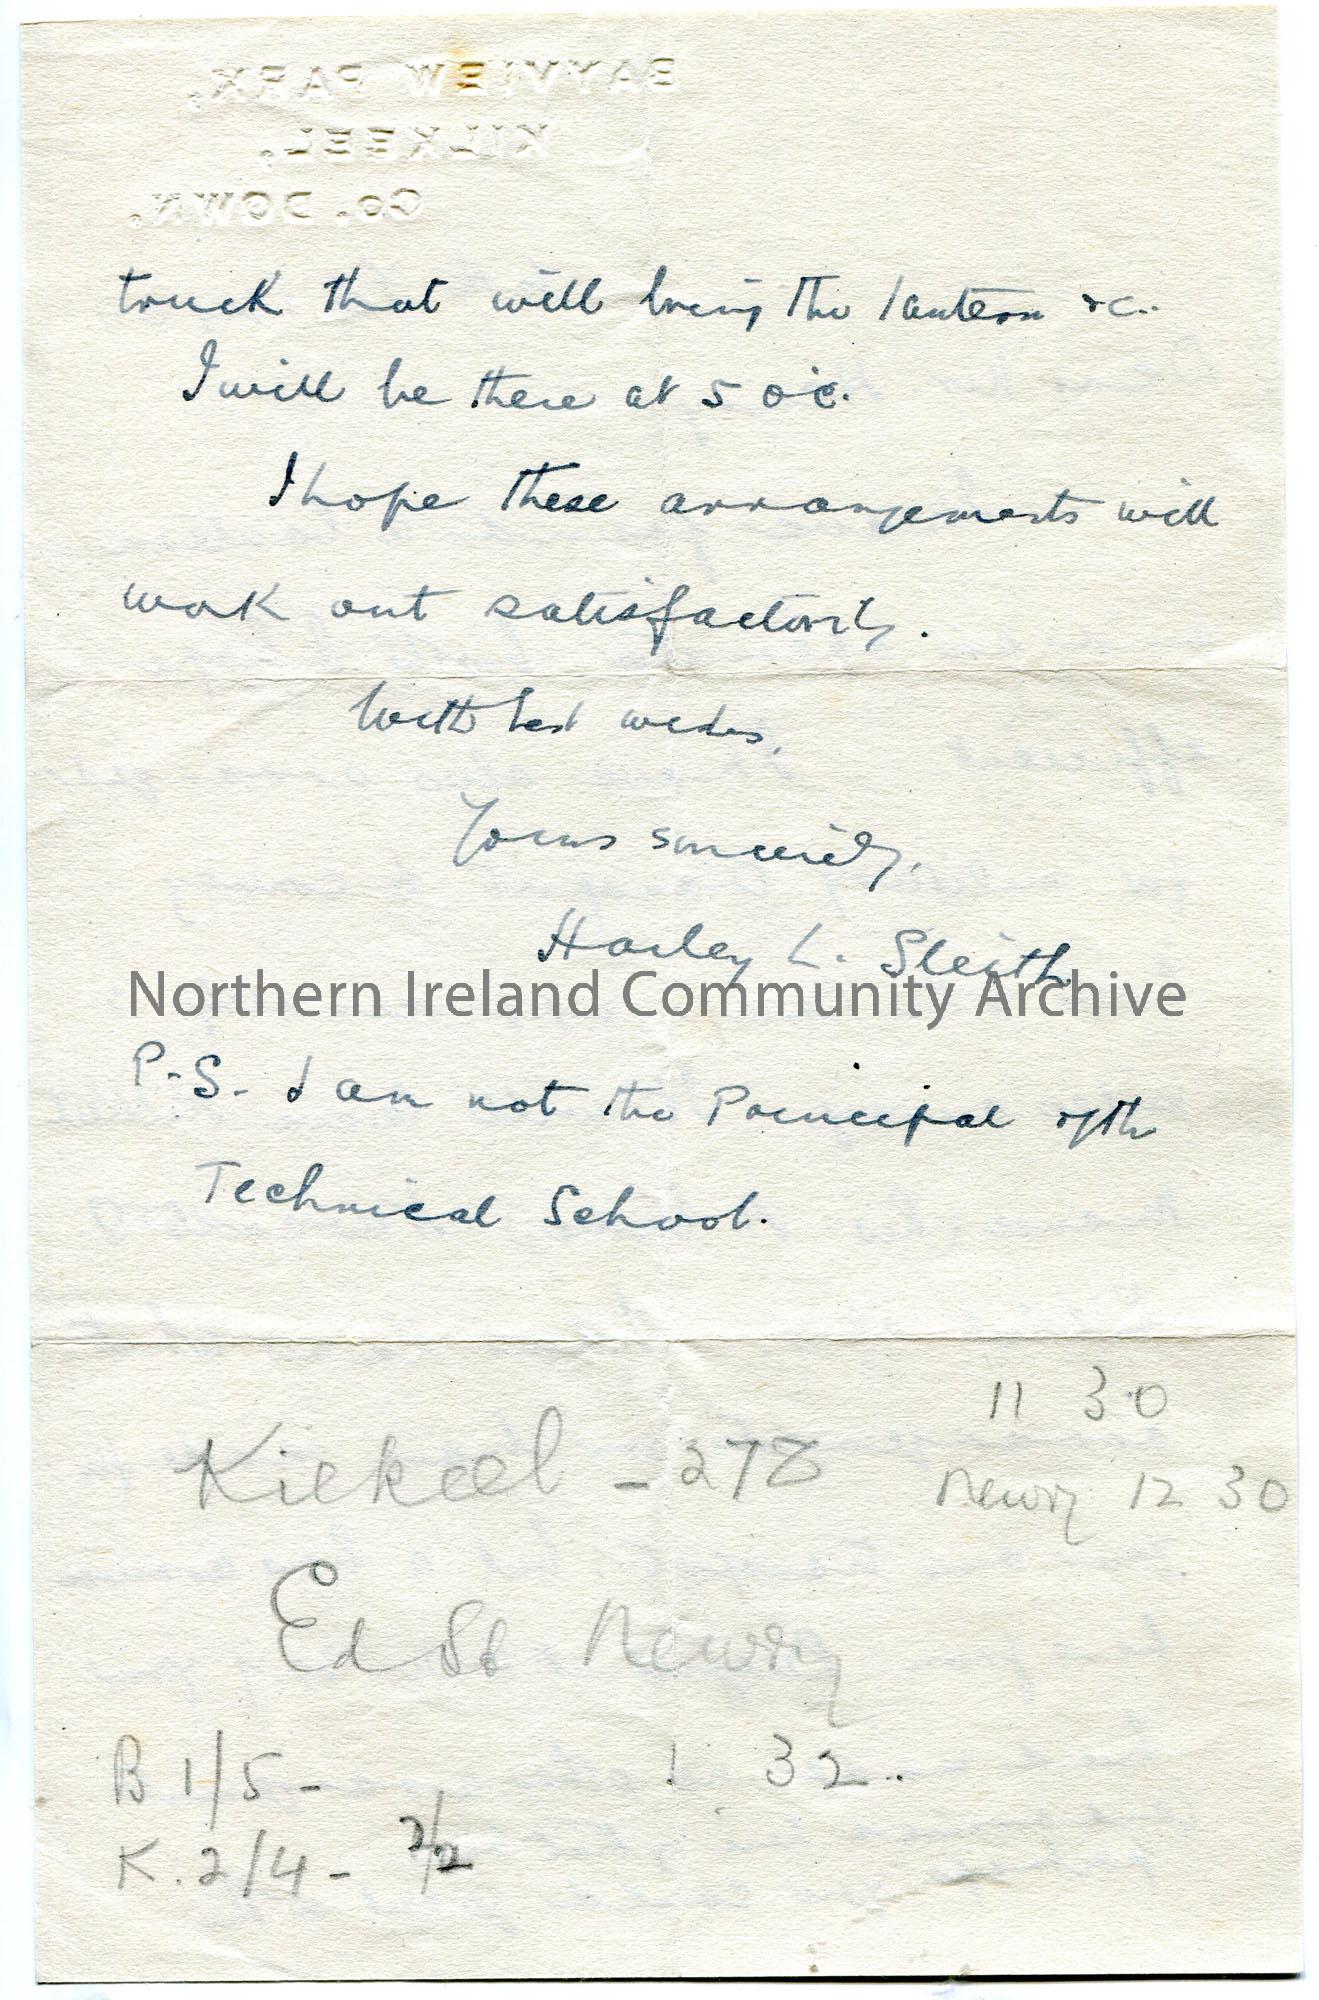 BAYVIEW PARK,
KILKEEL,
Co. DOWN.
truck that will bring the lantern &c.
I will be there at 5 o'c.
I hope these arrangements will
work out satisfactorily.
With best wishes,
Yours sincerely,
Harley L. Sleith
Northern Ireland Community Archive
P.S. I am not the Principal of the
Technical School.
11 30
Kilkeel - 278
Newry 12 30
Ed St Newry
B 1/5 - 1 32..
K. 2/4 - 2/2